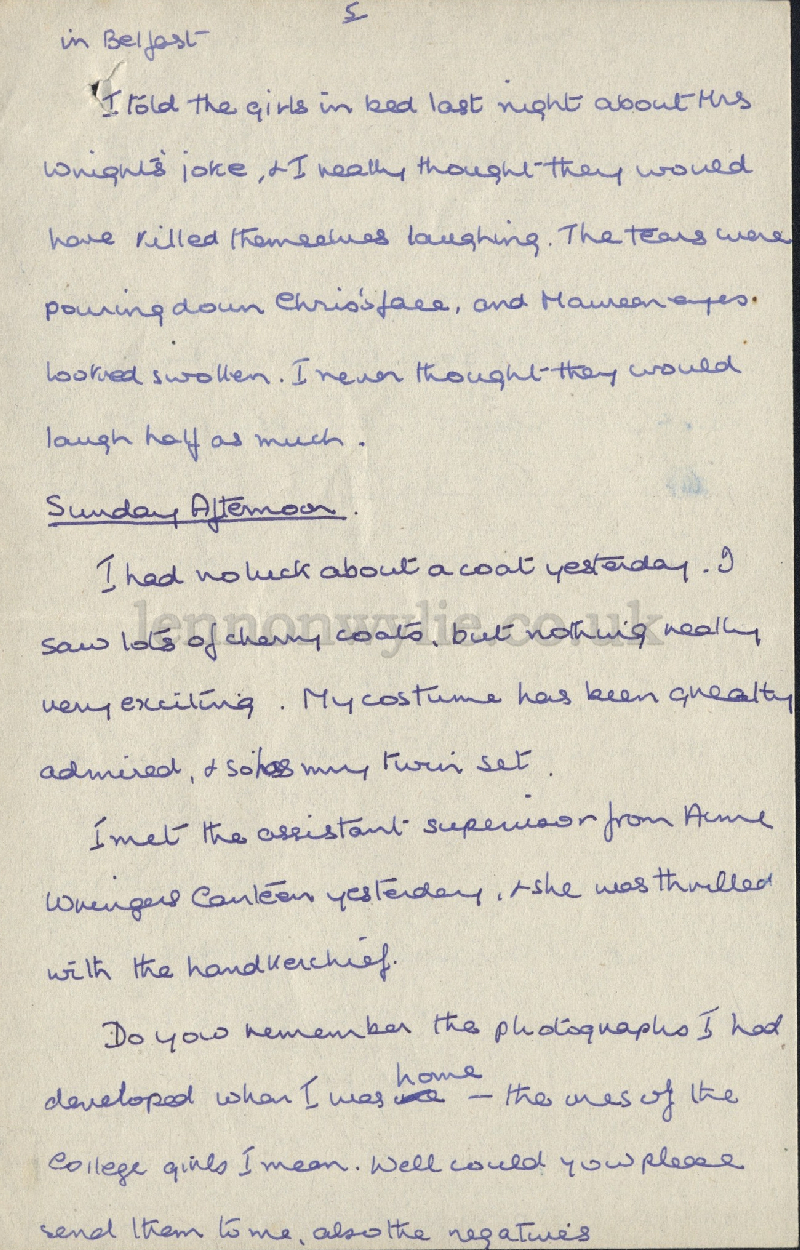 5
in Belfast
I told the girls in bed last night about Mrs
Wright's joke, & I really thought they would
have killed themselves laughing. The tears were
pouring down Chris's face, and Maureen eyes
looked swollen. I never thought they would
laugh half as much.
Sunday Afternoon.
I had no luck about a coat yesterday. I
lennonwylie.co.uk
saw lots of cherry coats, but nothing really
very exciting. My costume has been greatly
admired, & so has my twin set.
I met the assistant supervisor from Acme
Wringers Canteen yesterday, & she was thrilled
with the handkerchief.
Do you remember the photographs I had
home
developed when I was — the ones of the
College girls I mean. Well could you please
send them to me, also the negatives